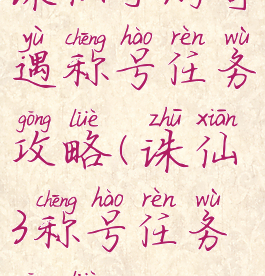 yù chēng hào rèn wù
遇称号任务
gōng lüè zhū xiān
攻略(诛仙
chēng hào rèn wù
3称号任务